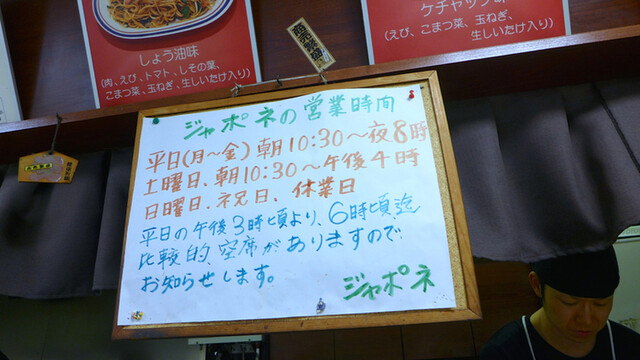 しょう油味
(肉、えび、トマト、しその葉、
こまつ菜、玉ねぎ、生しいたけ入り)
商売繁盛
ケチャップ
(えび、こまつ菜、玉ねぎ、
生しいたけ入り)
ジャポネの営業時間
平日(月〜金)朝10:30〜夜8時
土曜日、朝10:30〜午後4時
日曜日、祝日、休業日
平日の午後3時頃より、6時頃迄
比較的、空席がありますので
お知らせします。
ジャポネ